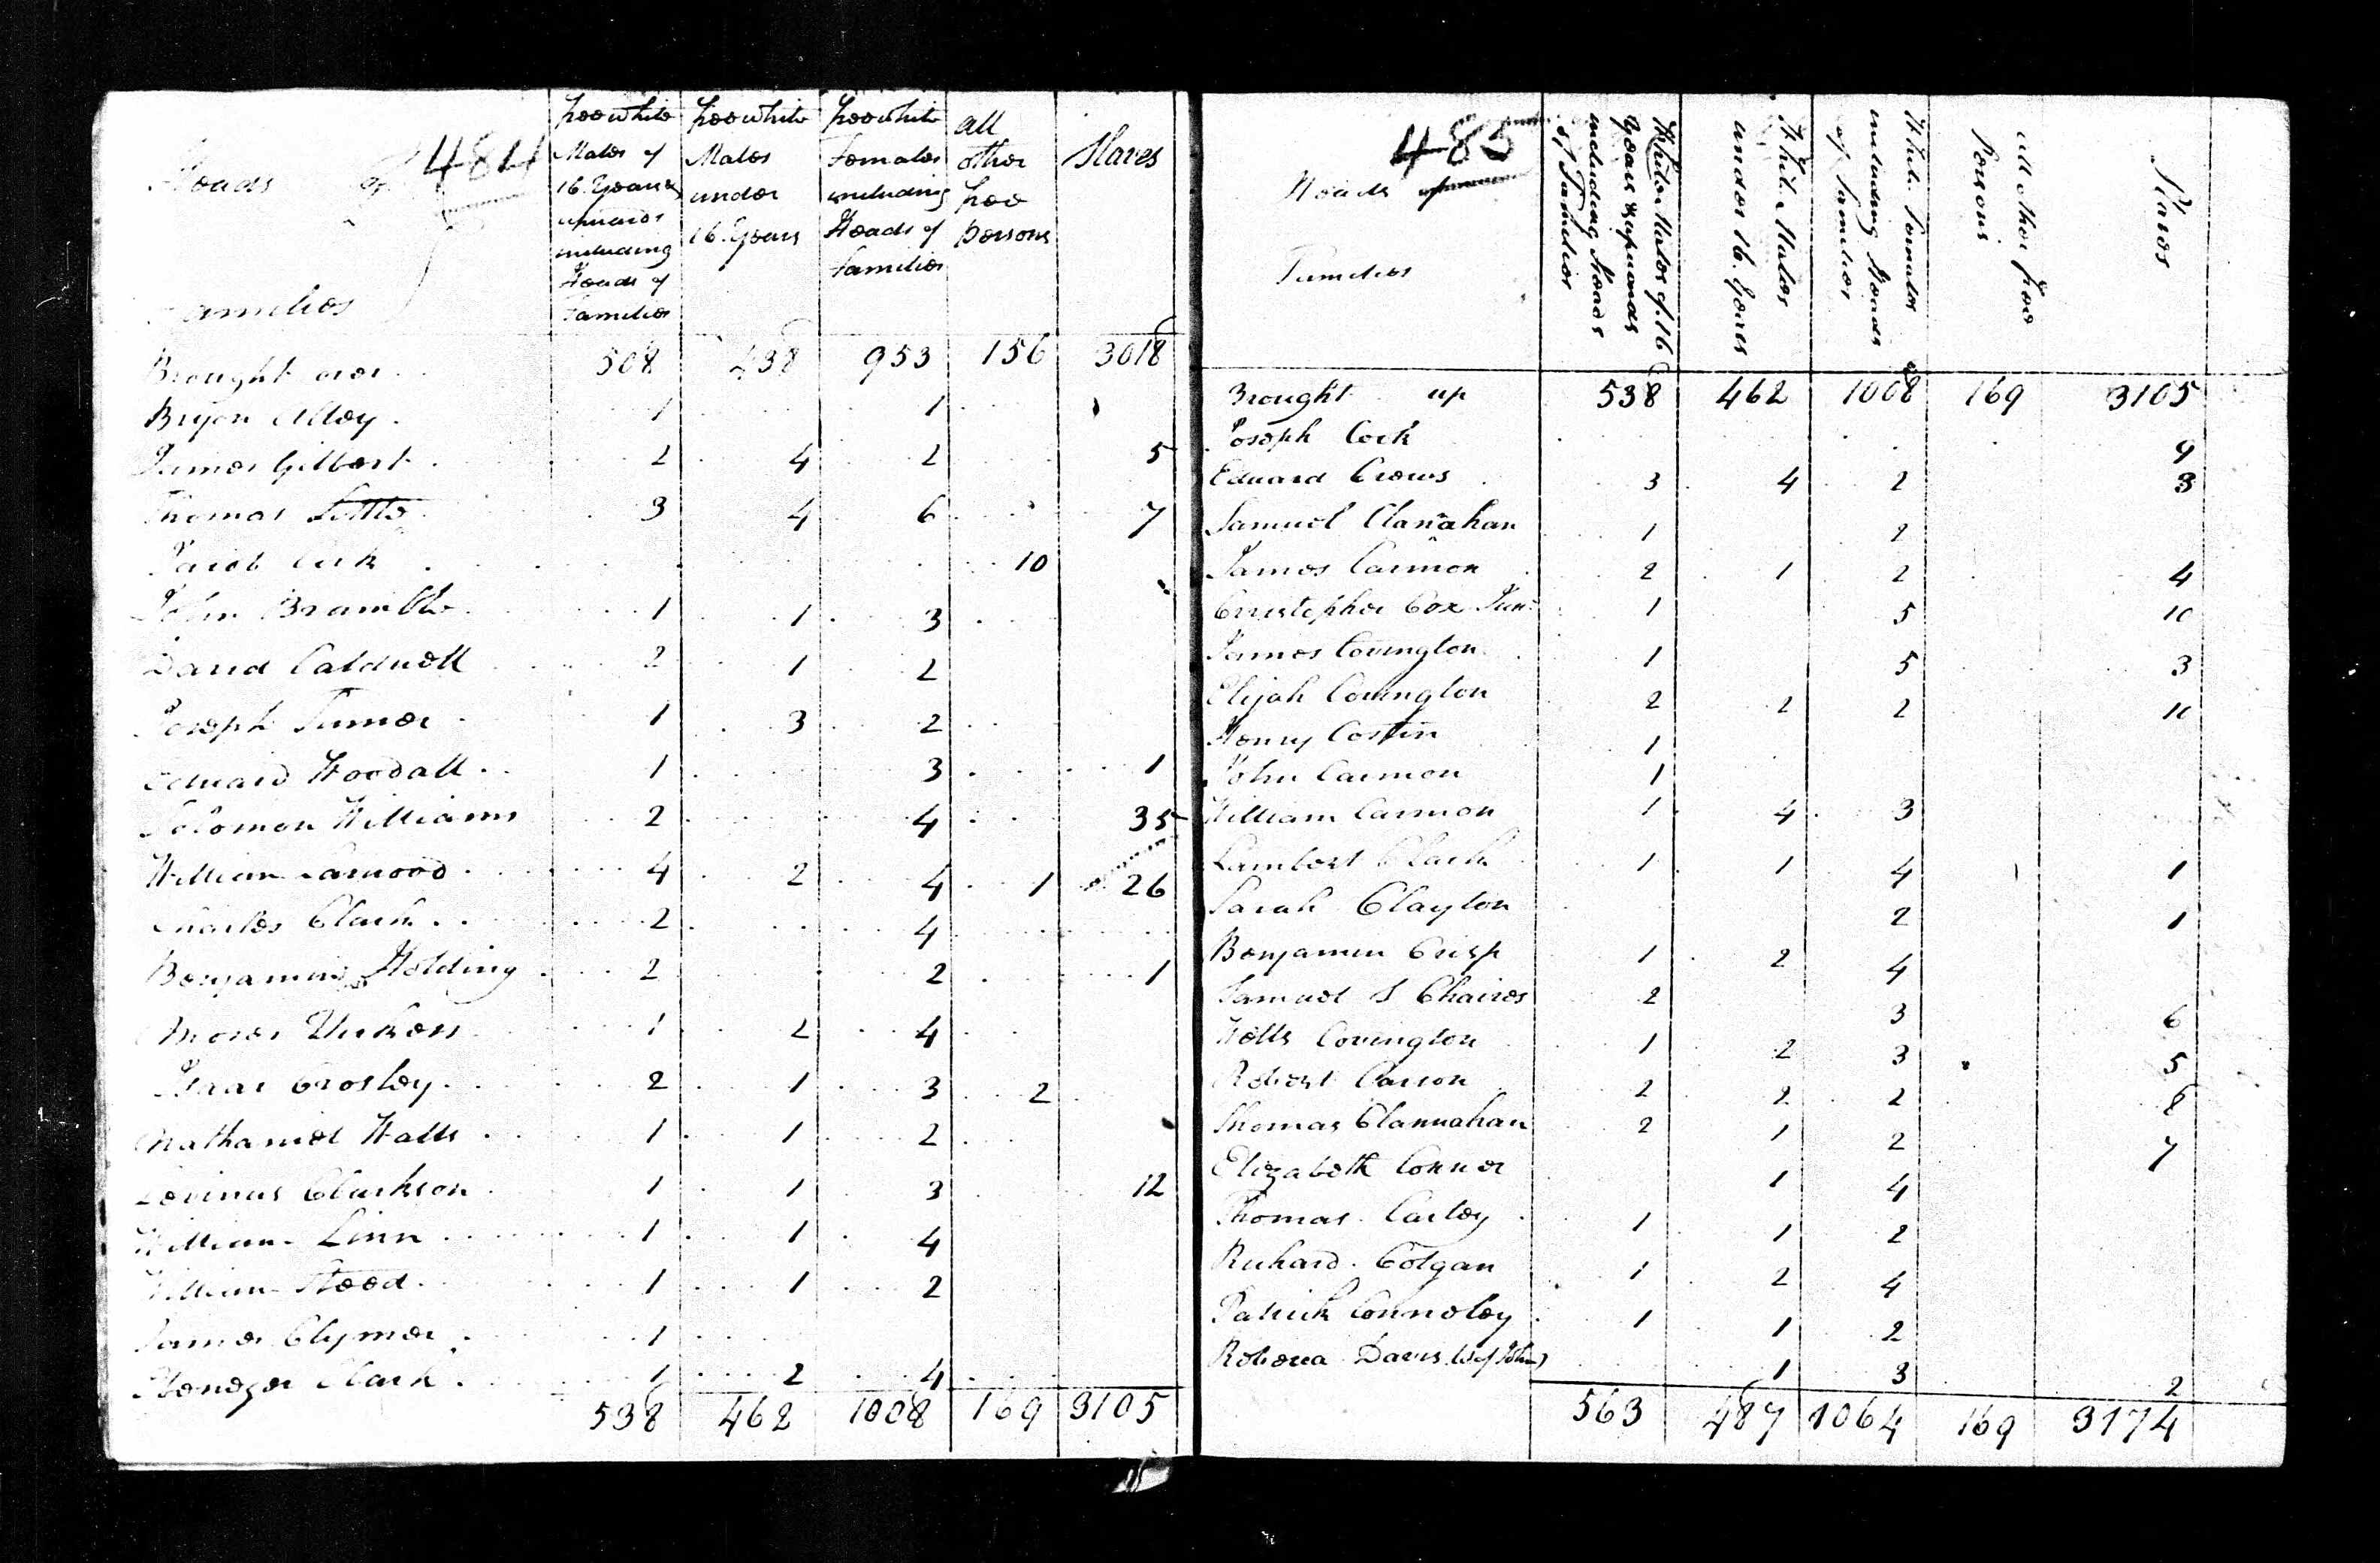 484
Heads of
Families
Free white Males of 16. Years & upwards including Heads of Families
Free white Males under 16. Years
Free white Females including Heads of Families
all other free persons
Slaves
Brought over 508 438 953 156 3018
Bryon Alley 1 1
James Gilbert 2 4 2 5
Thomas Little 3 4 6 7
Jacob 10
John Bramble 1 1 3
David Caldwell 2 1 2
Joseph Turner 1 3 2
Edward Woodall 1 3 1
Solomon Williams 2 4 35
William 4 2 4 1 26
Charles Clark 2 4
Benjamin Holding 2 2 1
Moses 1 2 4
Isaac Crosley 2 1 3 2
Nathaniel Watts 1 1 2
Levinus Clarkson 1 1 3 12
William Linn 1 1 4
William Steed 1 1 2
James Clymer 1
Ebenezer Clark 1 2 4
538 462 1008 169 3105
485
Heads of
Families
White Males of 16 Years & upwards including Heads of Families
White Males under 16. Years
White Females including Heads of Families
all other free Persons
Slaves
Brought up 538 462 1008 169 3105
Joseph Cock 9
Edward Crews 3 4 2 3
Samuel Clanahan 1 2
James Carmon 2 1 2 4
Christopher Cox Junr 1 5 10
James Covington 1 5 3
Elijah Covington 2 2 2 10
Henry Costin 1
John Carmon 1
William Carmon 1 4 3
Lambert Clark 1 1 4 1
Sarah Clayton 2 1
Benjamin Crisp 1 2 4
Samuel S Chaires 2 3 6
Wells Covington 1 2 3 5
Robert Carson 2 2 2 8
Thomas Clannahan 2 1 2 7
Elizabeth Conner 1 4
Thomas Carley 1 1 2
Richard Colgan 1 2 4
Patrick Connoley 1 1 2
Rebecca Davis (W of John) 1 3 2
563 487 1064 169 3174